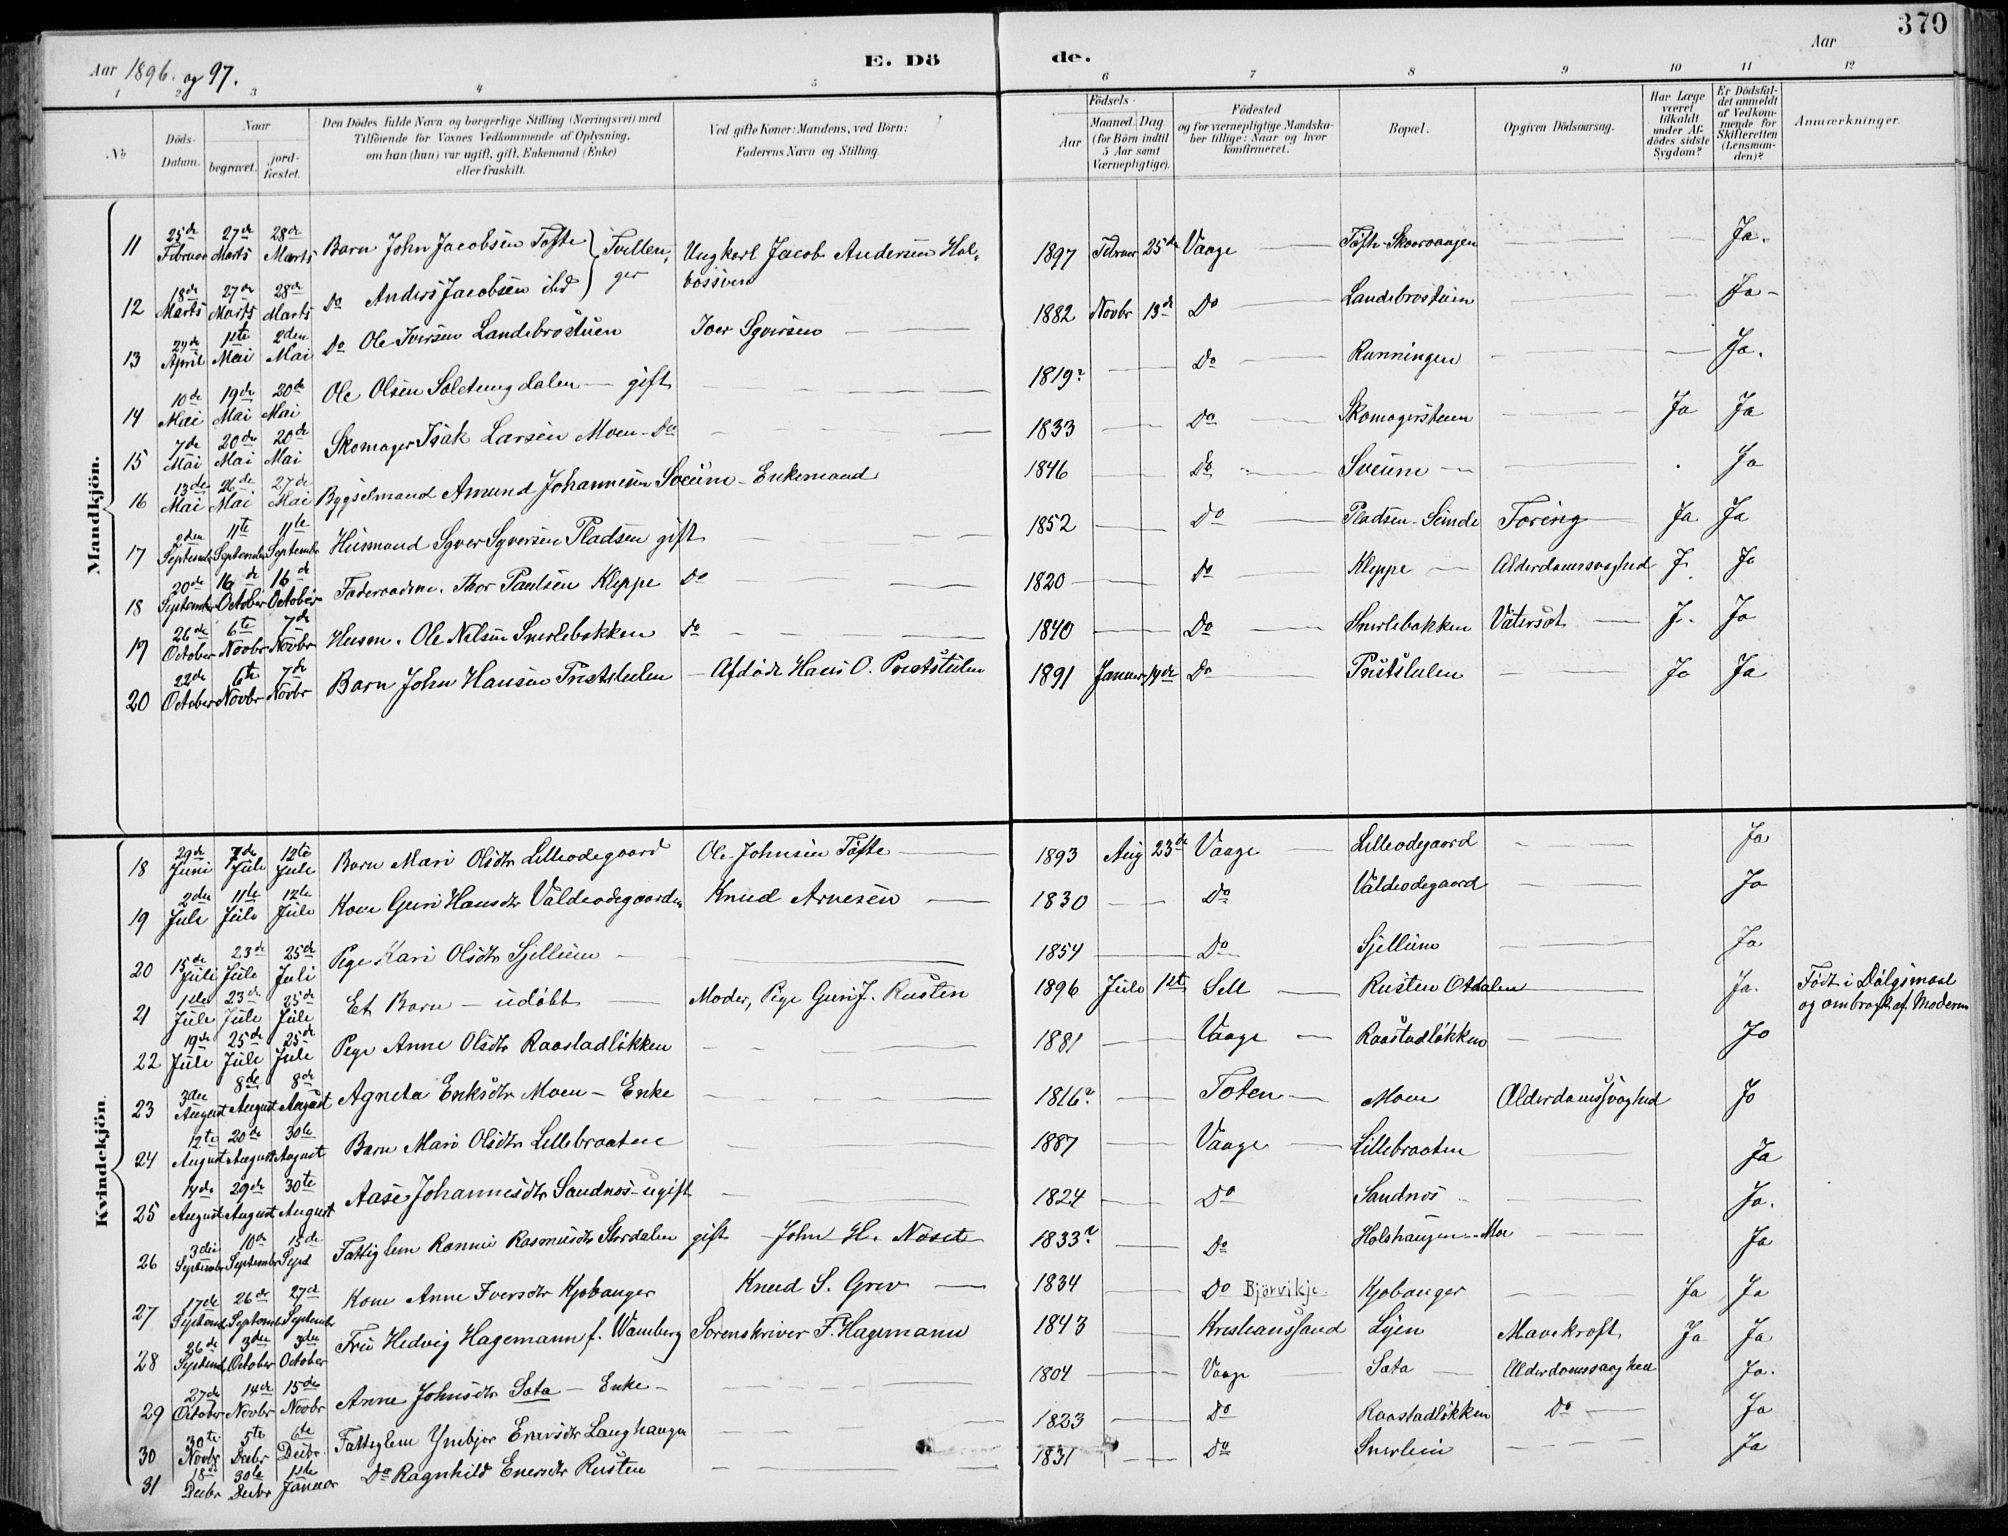 370
Aar 1896. og 97.
E. Dö
de.
Aar
1 2 3 4 5 6 7 8 9 10 11 12
No
Döds-
Datum.
Naar
begravet.
jord-
fæstet.
Den Dödes fulde Navn og borgerlige Stilling (Næringsvei) med
Tilföiende for Voxnes Vedkommende af Oplysning,
om han (hun) var ugift, gift, Enkemand (Enke)
eller fraskilt.
Ved gifte Koner: Mandens, ved Börn:
Faderens Navn og Stilling.
Födsels-
Aar
Maaned Dag
(for Börn indtil
5 Aar samt
Værnepligtige).
Födested
og for værnepligtige Mandska-
ber tillige: Naar og hvor
konfirmeret.
Bopæl.
Opgiven Dödsaarsag.
Har Læge
været
tilkaldt
under Af-
dödes sidste
Sygdom?
Er Dödsfal-
det anmeldt
af Vedkom-
mende for
Skifteretten
(Lensman-
den)?
Anmærkninger.
Mandkjön.
11 25de Februar 27de Marts 28de Marts Barn John Jacobsen Tofte } Tvillin- Ungkarl Jacob Andersen Hol- 1897 Februar 25de Vaage Tofte-Skaarvangen Ja.
12 18de Marts 27de Marts 28de Marts Do Anders Jacobsen ibd ger bossven 1882 Novbr 13de Do Landebrostuen Ja
13 24de April 1ste Mai 2den Mai Do Ole Iversen Landebrostuen Iver Syversen 1819? Do Runningen Ja.
14 10de Mai 19de Mai 20de Mai Ole Olsen Soletungdalen gift 1833 Do Skomagerstuen Ja Ja
15 7de Mai 20de Mai 20de Mai Skomager Isak Larsen Moen Do 1846 Do Sveum Ja
16 13de Mai 26de Mai 27de Mai Bygselmand Amund Johannesen Sveum - Enkemand 1852 Do Pladsen-Sunde Toring Ja Ja
17 2den September 11te September 11te September Husmand Syver Syversen Pladsen gift 1820 Do Kleppe Alderdomssvaghed J. Ja
18 20de September 16de October 16de October Foderaadsm. Thor Paulsen Kleppe do 1840 Do Snerlebakken Vatersot J. Ja
19 26de October 6te Novbr 7de Novbr Husm. Ole Nilsen Snerlebakken do 1891 Januar 14de Do Prestsletten Ja Ja
20 22de October 6te Novbr 7de Novbr Barn John Hansen Prestslulen - Afdöde Hans O. Prestslulen
Kvindekjön.
18 29de Juni 7de Juli 12te Juli Barn Mari Olsdtr Lilleodegaard Ole Johnsen Tofte 1893 Aug 23de Vaage Lilleodegaard Ja
19 2den Juli 11te Juli 12te Juli Kone Guri Hansdtr Valdeodegaarden Knud Arnesen 1830 Do Valdeodegaard Ja
20 15de Juli 23de Juli 25de Juli Pige Kari Olsdtr Sjellum 1854 Do Sjellum Ja
21 1ste Juli 23de Juli 25de Juli Et Barn - udöbt Moder, Pige Guri J. Rusten 1896 Juli 1ste Sell Rusten Ottdalen Ja. Födt i Dölgsmaal
og ombragt af Moderen
22 19de Juli 25de Juli 25de Juli Pige Anne Olsdtr Raastadlökken 1881 Vaage Raastadlökken Ja
23 3die August 8de August 8de August Agneta Eriksdtr Moen - Enke 1816? Toten Moen Alderdomssvaghed Ja
24 12te August 20de August 30te August Barn Mari Olsdtr Lillebraaten 1887 Vaage Lillebraaten Ja
25 14de August 29de August 30te August Aase Johannesdtr Sandnes - ugift 1824 Do Sandnes Ja.
26 3die September 10de September 15de Sept Fattiglem Rannei Rasmusdtr Stordalen gift - John H. Noset 1833? Do Holshaugen-Moe Ja
27 17de September 26de September 27de September Kone Anne Iversdtr Kjobanger Knud S. Grev 1834 Do Björvikje Kjobanger Ja Ja
28 26de September 3die October 3die October Fru Hedvig Hagemann f. Wamberg Sorenskriver F. Hagemann 1843 Kristianssand Syen Mavekræft Ja Ja
29 27de October 14de Novbr 15de Novbr Anne Johnsdtr Sata - Enke 1804 Vaage Sata Alderdomssvaghed Ja.
30 30te Novbr 5te Decbr 6te Decbr Fattiglem Ynnbjor Enersdtr Langhaugen 1823 Do Raastadlökken Do Ja
31 18de Decbr 30te Decbr 1ste Januar Do Ragnhild Enersdtr Rusten 1831 Do Snerlein Ja